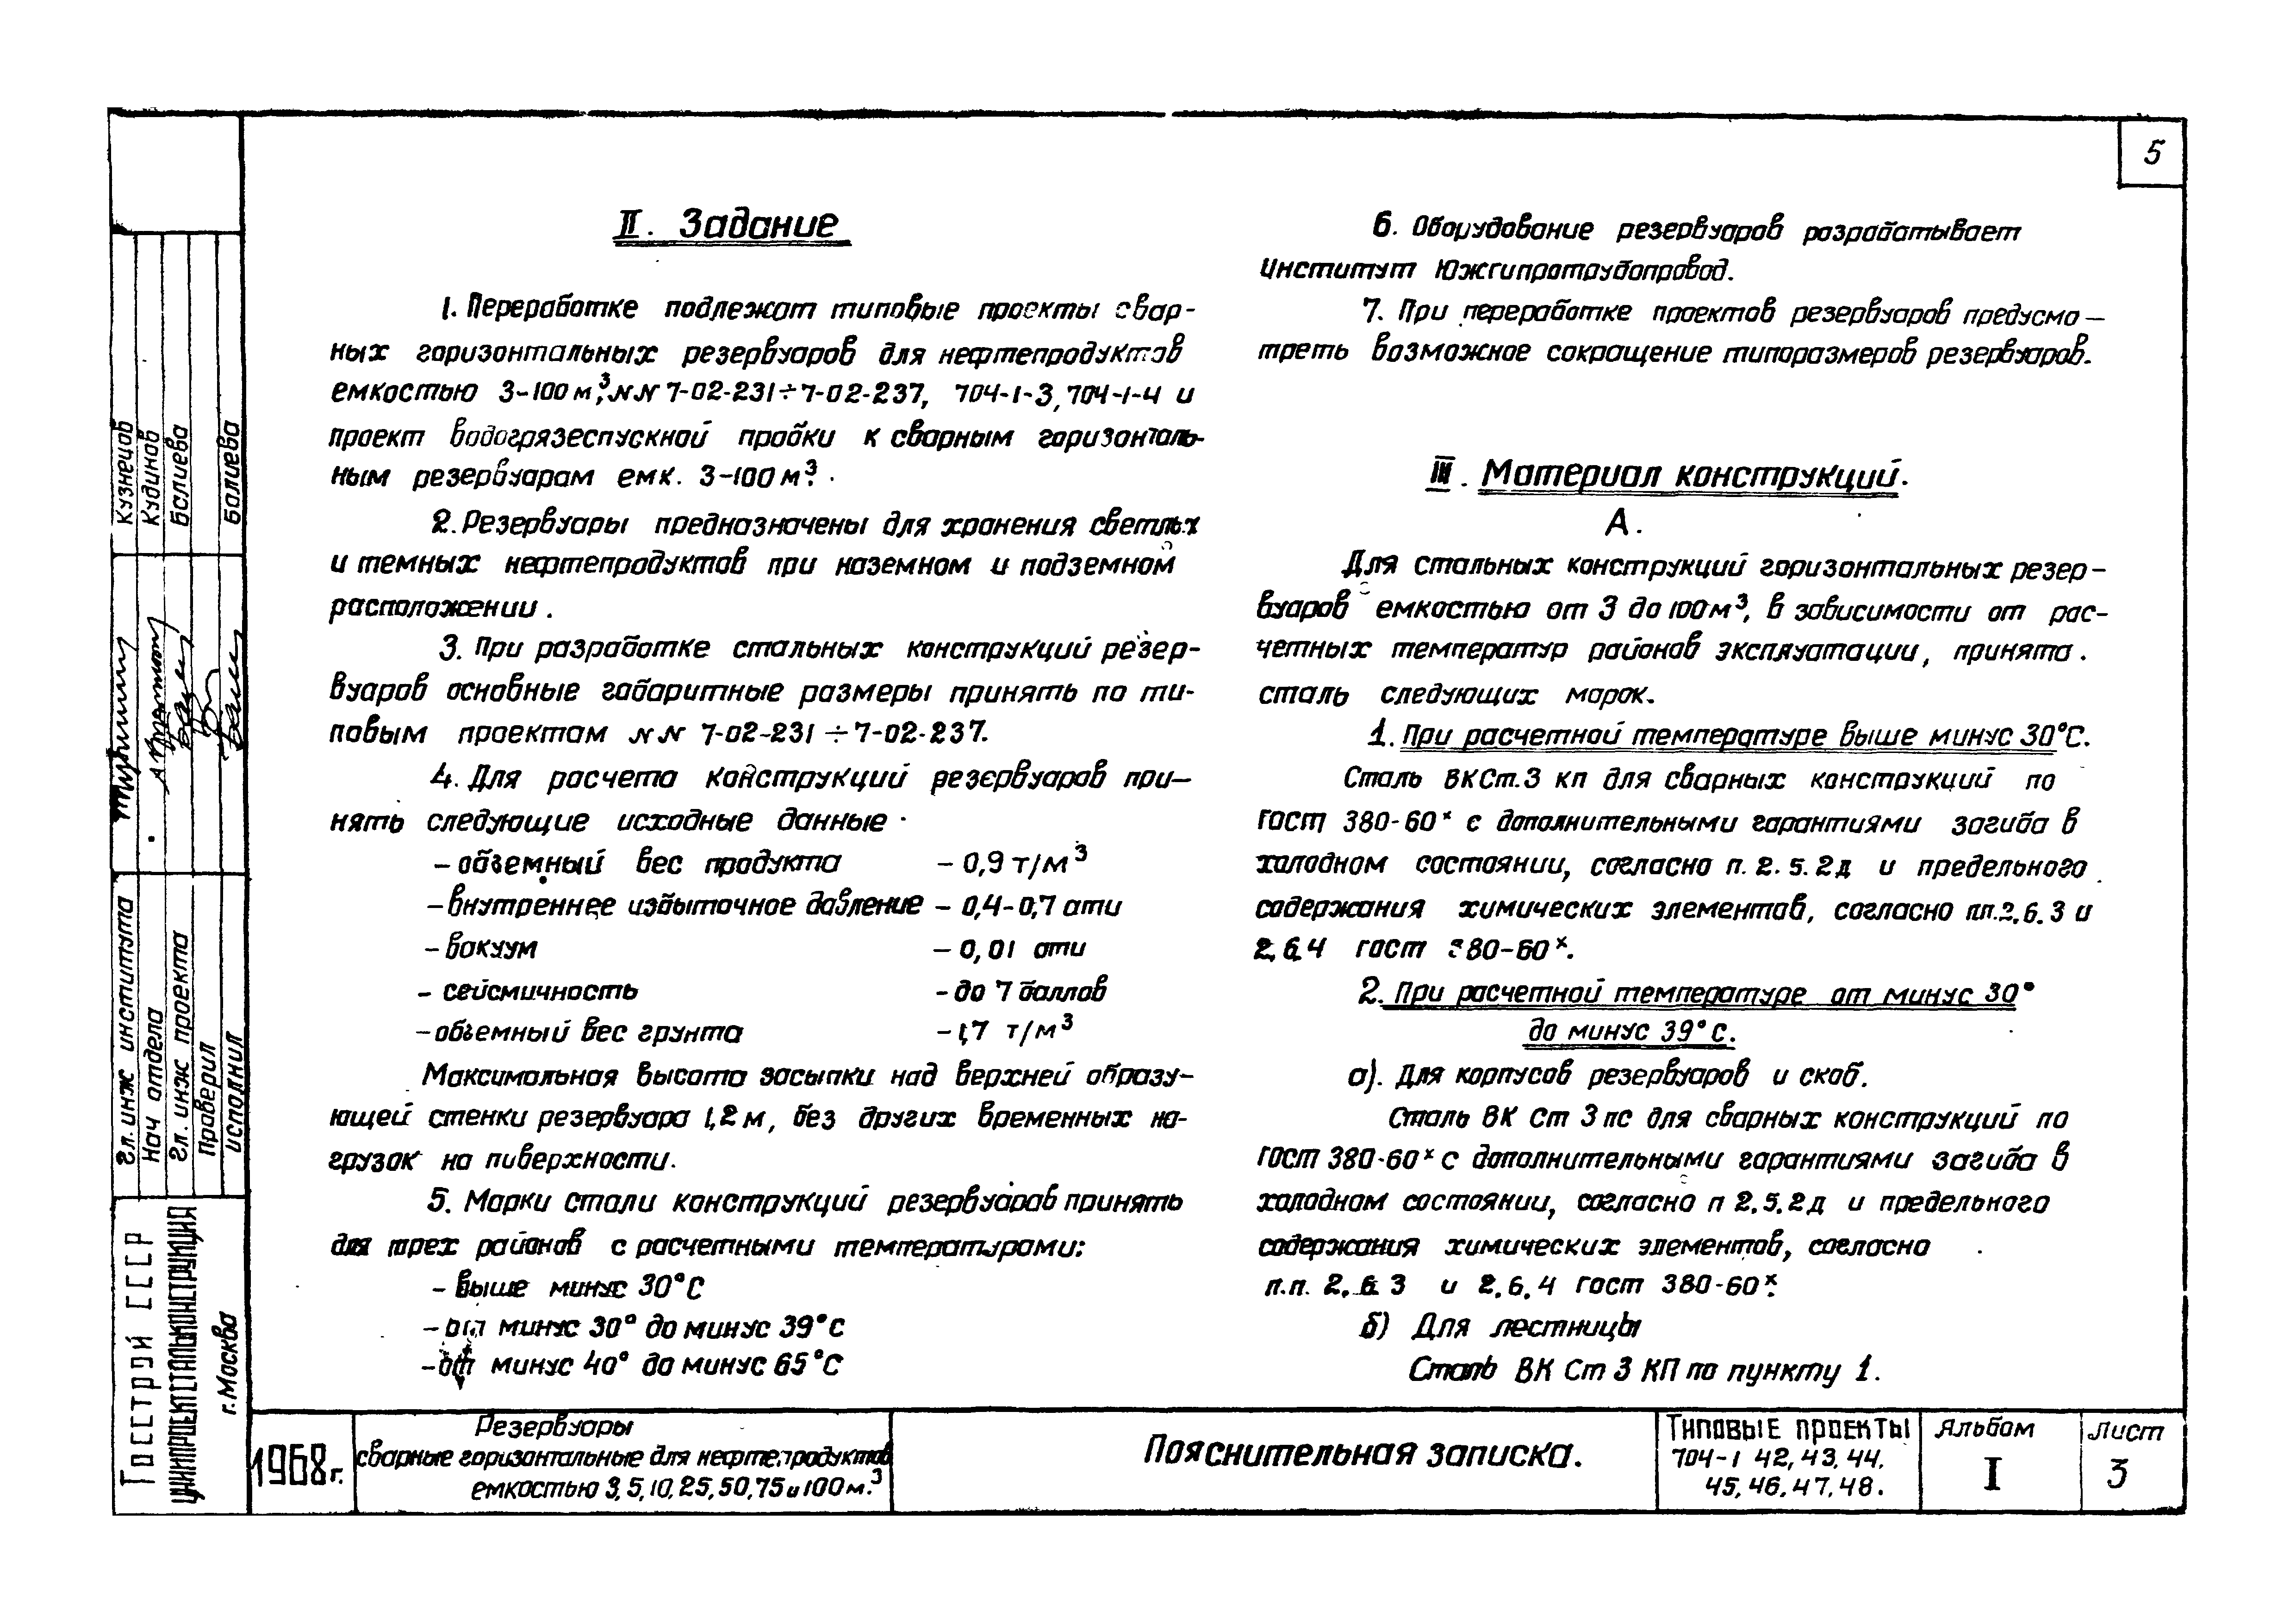 5
II. Задание
1. Переработке подлежат типовые проекты свар-
ных горизонтальных резервуаров для нефтепродуктов
емкостью 3-100 м³, №№ 7-02-231÷7-02-237, 704-1-3, 704-1-4 и
проект водогрязеспускной пробки к сварным горизонталь-
ным резервуарам емк. 3-100 м³.
2. Резервуары предназначены для хранения светлых
и темных нефтепродуктов при наземном и подземном
расположении.
3. При разработке стальных конструкций резер-
вуаров основные габаритные размеры принять по ти-
повым проектам №№ 7-02-231÷7-02-237.
4. Для расчета конструкций резервуаров при-
нять следующие исходные данные.
- объемный вес продукта - 0,9 т/м³
- внутреннее избыточное давление - 0,4-0,7 ати
- вакуум - 0,01 ати
- сейсмичность - до 7 баллов
- объемный вес грунта - 1,7 т/м³
Максимальная высота засыпки над верхней образу-
ющей стенки резервуара 1,2 м, без других временных на-
грузок на поверхности.
5. Марки стали конструкций резервуаров принять
для трех районов с расчетными температурами:
- выше минус 30°С
- от минус 30° до минус 39°С
- от минус 40° до минус 65°С
6. Оборудование резервуаров разрабатывает
институт Южгипротрубопровод.
7. При переработке проектов резервуаров предусмо-
треть возможное сокращение типоразмеров резервуаров.
III. Материал конструкций.
А.
Для стальных конструкций горизонтальных резер-
вуаров емкостью от 3 до 100 м³, в зависимости от рас-
четных температур районов эксплуатации, принята
сталь следующих марок.
1. При расчетной температуре выше минус 30°С.
Сталь ВКСт.3 кп для сварных конструкций по
гост 380-60ˣ с дополнительными гарантиями загиба в
холодном состоянии, согласно п. 2.5.2д и предельного
содержания химических элементов, согласно пп.2.6.3 и
2.6.4 гост 380-60ˣ.
2. При расчетной температуре от минус 30°
до минус 39°С.
а). Для корпусов резервуаров и скоб.
Сталь ВК Ст 3 пс для сварных конструкций по
гост 380-60ˣ с дополнительными гарантиями загиба в
холодном состоянии, согласно п 2.5.2д и предельного
содержания химических элементов, согласно
п.п. 2.6.3 и 2.6.4 гост 380-60ˣ.
б) Для лестницы
Сталь ВК Ст 3 КП по пункту 1.
Госстрой СССР
ЦНИИПРОЕКТСТАЛЬКОНСТРУКЦИЯ
г. Москва
гл. инж института Кузнецов
Нач отдела Кудинов
гл. инж проекта Баслиева
Проверил
исполнил Балиева
1968 г.
Резервуары
сварные горизонтальные для нефтепродуктов
емкостью 3, 5, 10, 25, 50, 75 и 100 м.³
Пояснительная записка.
Типовые проекты
704-1 42, 43, 44,
45, 46, 47, 48.
Альбом
I
Лист
3